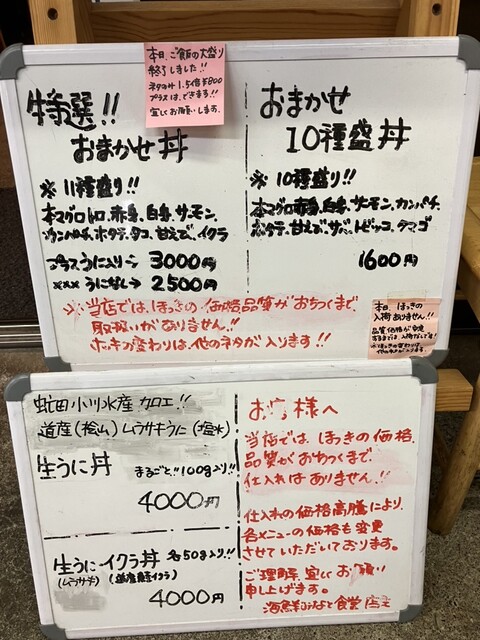 本日、ご飯の大盛り
終了しました!!
ネタのみ1.5倍 ¥800
プラスは、できます!!
宜しくお願いします。
特選!!
おまかせ丼
※11種盛り!!
本マグロトロ、赤身、白身、サーモン、
カンパチ、ホタテ、タコ、甘えび、イクラ
プラスうに入り→ 3000円
××× うになし→ 2500円
おまかせ
10種盛丼
※10種盛り!!
本マグロ赤身、白身、サーモン、カンパチ、
ホタテ、甘えび、サバ、トビッコ、タマゴ
1600円
※当店では、ほっきの価格品質がおちつくまで、
取扱いがありません!!
ホッキ変わりは、他のネタが入ります!!
本日、ほっきの
入荷ありません!!
品質価格が安定
するまでは、入荷なしです!
※ほっきの変わりは、
他のネタが入ります
虻田小川水産 加工!!
道産(桧山)ムラサキうに(塩水)
生うに丼 まるごと!!100g入り!!
4000円
生うに・イクラ丼 各50g入り!!
(ムラサキ) (道産鮭イクラ)
4000円
お客様へ
当店では、ほっきの価格、
品質がおちつくまで、
仕入れはありません!!
仕入れの価格高騰により、
各メニューの価格も変更
させていただいております。
ご理解、宜しくお願い
申し上げます。
海鮮みなと食堂 店主